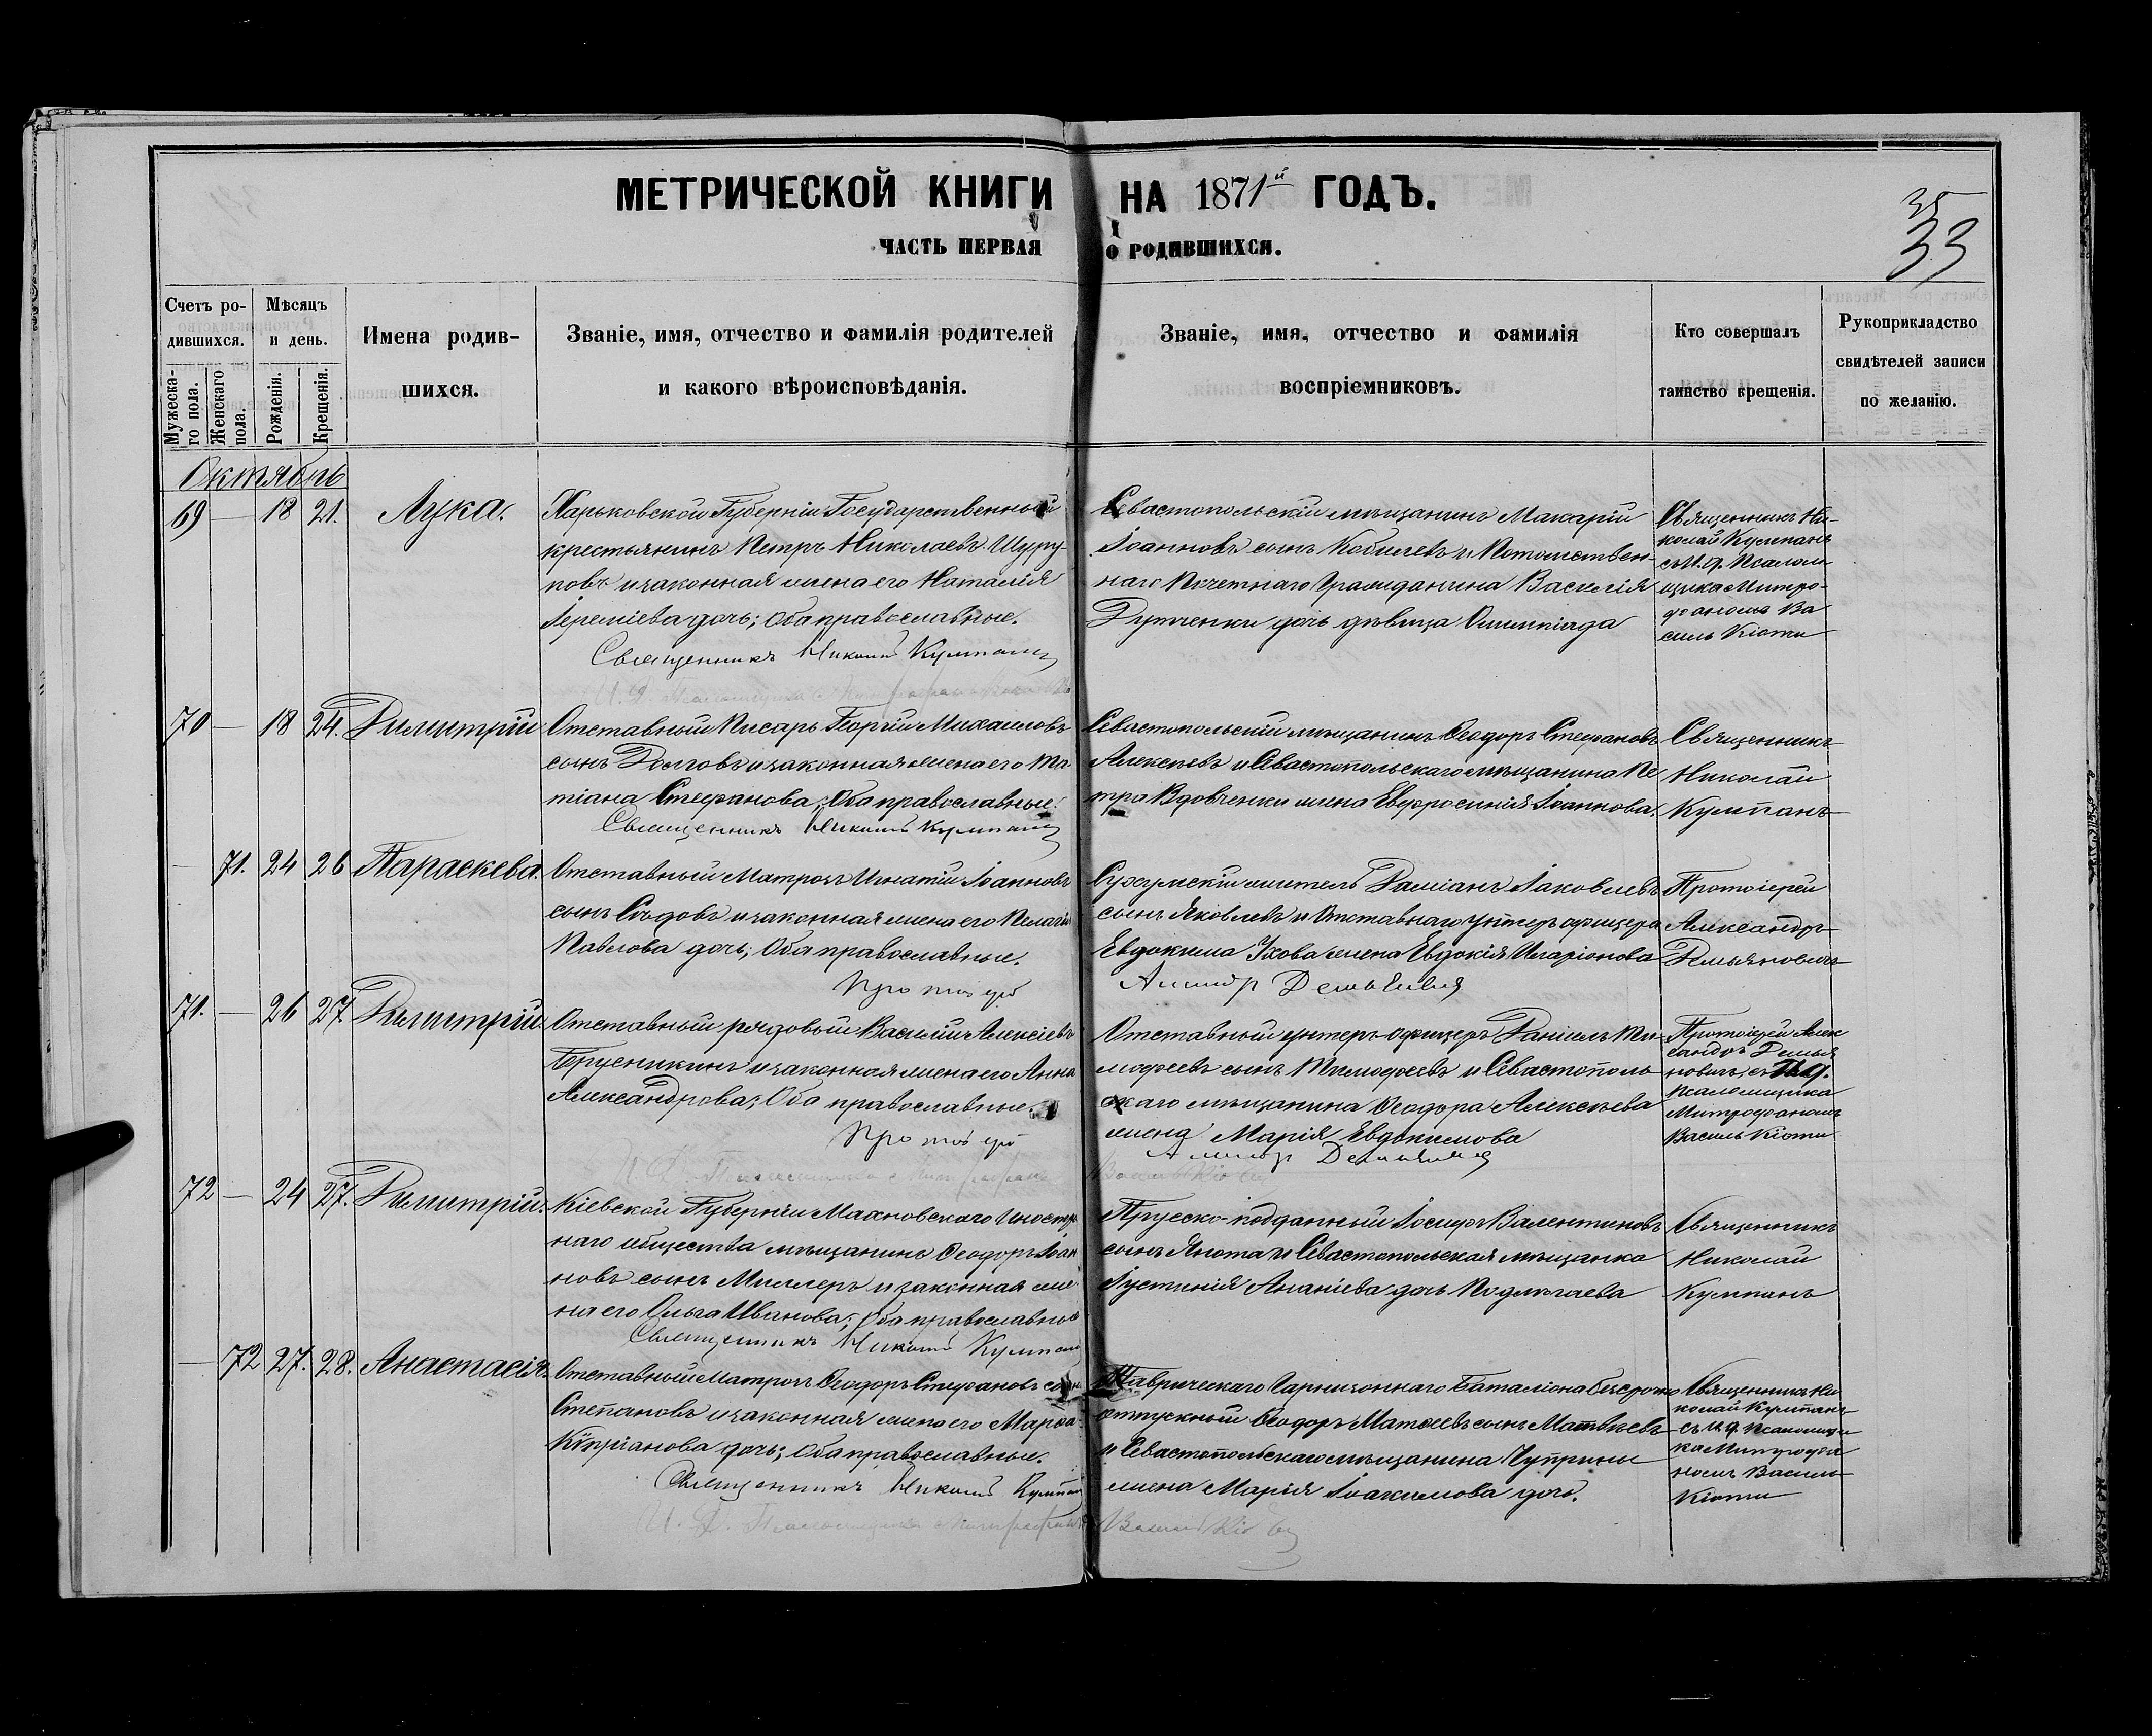 МЕТРИЧЕСКОЙ КНИГИ НА 1871й ГОДЪ.
ЧАСТЬ ПЕРВАЯ О РОДИВШИХСЯ.
35
33
Счетъ ро-
дившихся.
Мужеска-
го пола.
Женскаго
пола.
Мѣсяцъ
и день.
Рожденія.
Крещенія.
Имена родив-
шихся.
Званіе, имя, отчество и фамилія родителей
и какого вѣроисповѣданія.
Званіе, имя, отчество и фамилія
воспріемниковъ.
Кто совершалъ
таинство крещенія.
Рукоприкладство
свидѣтелей записи
по желанію.
Октябрь
69 — 18 21. Лука.
Харьковской Губерніи Государственный
крестьянинъ Петръ Николаевъ Шуру-
повъ и законная жена его Наталія
Іереміева дочь; Оба православные.
Священникъ Николай Кулманъ
Севастопольскій мѣщанинъ Макарій
Іоанновъ сынъ Кобилевъ и Потомствен-
наго Почетнаго Гражданина Василія
дочь дѣвица Олимпіада
Священникъ Ни-
колай Кулманъ
съ И. д. Псалом-
щика Митро-
фаномъ Ва
силь Кіоти
70 — 18 24. Димитрій
Отставный Писарь Георгій Михаиловъ
сынъ Долговъ и законная жена его Та-
тіана Стефанова; Оба православные.
Священникъ Николай Кулманъ
Севастопольскій мѣщанинъ Ѳеодоръ Стефановъ
Алексѣевъ и Севастопольскаго мѣщанина Пе
тра Вдовченки жена Евфросинія Іоаннова.
Священникъ
Николай
Кулманъ
— 71. 24 26 Параскева.
Отставный Матрозъ Игнатій Іоанновъ
сынъ Сѣдовъ и законная жена его Пелагія
Павлова дочь; Оба православные.
Протоіерей
Сухумскій житель Даміанъ Іаковлевъ
сынъ Яковлевъ и Отставнаго унтеръ офицера
Евдокима жена Евдокія Иларіонова
Демьяновичъ
Протоіерей
Александръ
Демьяновичъ
71. — 26 27. Димитрій.
Отставный рядовый Василій Алексіевъ
Брусникинъ и законная жена его Анна
Александрова; Оба православные.
Протоіерей
Отставный унтеръ-офицеръ Даніилъ Ти-
моѳеевъ сынъ Тимоѳеевъ и Севастополь-
скаго мѣщанина Ѳеодора Алексѣева
жена Марія Евдокимова
Демьяновичъ
Протоіерей Алек
сандръ Демья
новичъ съ И. д.
Псаломщика
Митрофаномъ
Василь Кіоти
72 — 24 27. Димитрій.
Кіевской Губерніи Махновскаго
наго общества мѣщанинъ Ѳеодоръ Іоан
новъ сынъ Миллеръ и законная же
на его Ольга Иванова; Оба православные
Священникъ Николай Кулманъ
Прусско-подданный Іосифъ Валентиновъ
сынъ Янота и Севастопольская мѣщанка
Іустинія Ананіева дочь
Священникъ
Николай
Кулманъ
— 72 27. 28. Анастасія.
Отставный Матрозъ Ѳеодоръ Стефановъ сынъ
Степановъ и законная жена его Марѳа
Кипріанова дочь; Оба православные.
Священникъ Николай Кулманъ
Таврическаго Гарнизоннаго Баталіона безсрочно
отпускный Ѳеодоръ Матѳеевъ сынъ Матвѣевъ
и Севастопольскаго мѣщанина Чуприны
жена Марія Іоакимова дочь.
Священникъ Ни
колай Кулманъ
съ И. д. Псаломщи
ка Митрофа
номъ Василь
Кіоти